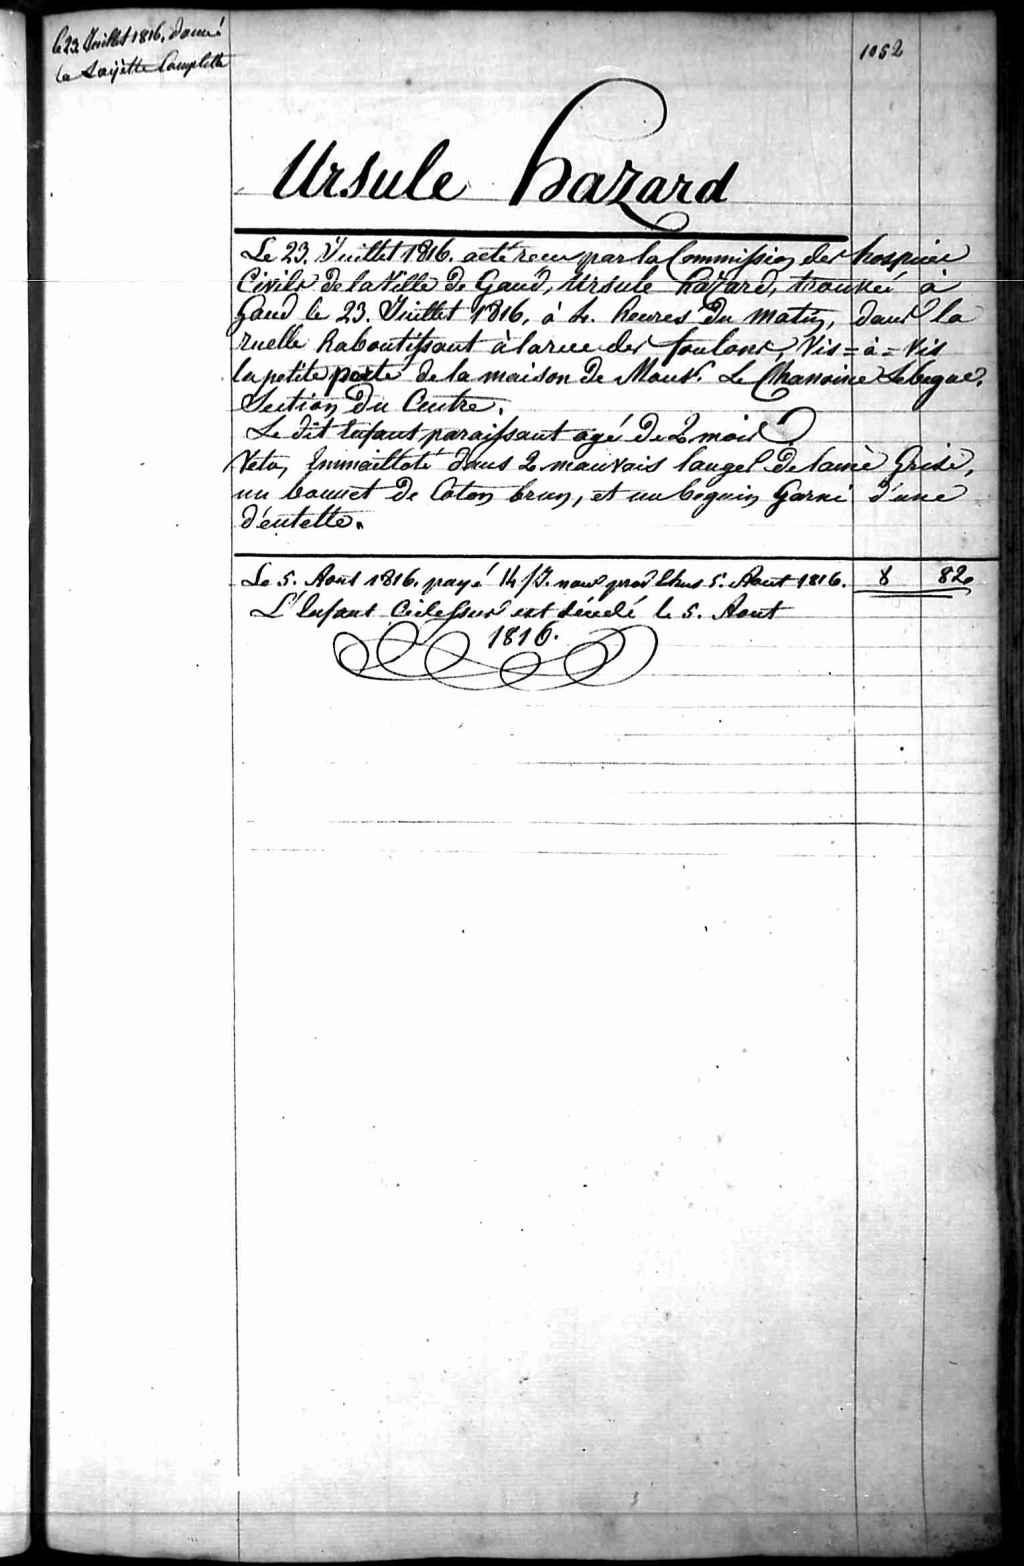 le 23. Juillet 1816. donné
la Layette Complette
1052
Ursule hazard
Le 23. Juillet 1816. a été recu par la Commission des hospices
Civils de la Ville de Gand, Ursule hazard, trouvéé à
Gand le 23. Juillet 1816, à 4. heures du matin, dans la
ruelle haboutissant à la rue des foulons, Vis=à=Vis
la petite porte de la maison de Monsr. Le Chanoine Lebegue,
Section du Centre.
Le dit Enfant paraissant agé de 2 mois
Vetu, Emmailloté dans 2 mauvais langes de lainè Grise,
un bonnet de Coton brun, et un beguin Garni d'une
d'entelle.
Le 5. Aout 1816. payé 14 js. nour pour Ethus 5. Aout 1816. 8 82
L'Enfant Cidessus est décédé le 5. Aout
1816.